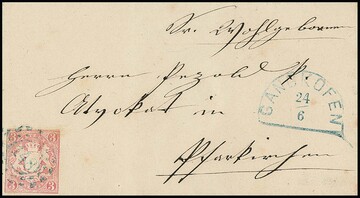 Sr. Wohlgeboren
Herrn Pezold k.
Advokat in
Pfarkirchen
GANGKOFEN
24
6
3 3
3 3